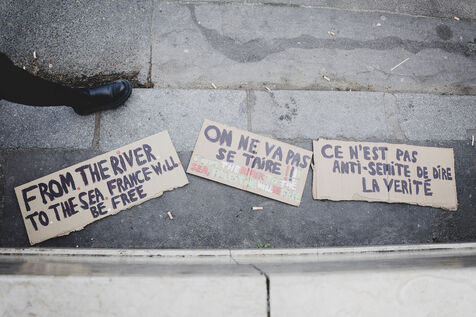 FROM THE RIVER
TO THE SEA FRANCE WILL
BE FREE
ON NE VA PAS
SE TAIRE !!
CE N'EST PAS
ANTI-SEMITE DE DIRE
LA VERITÉ